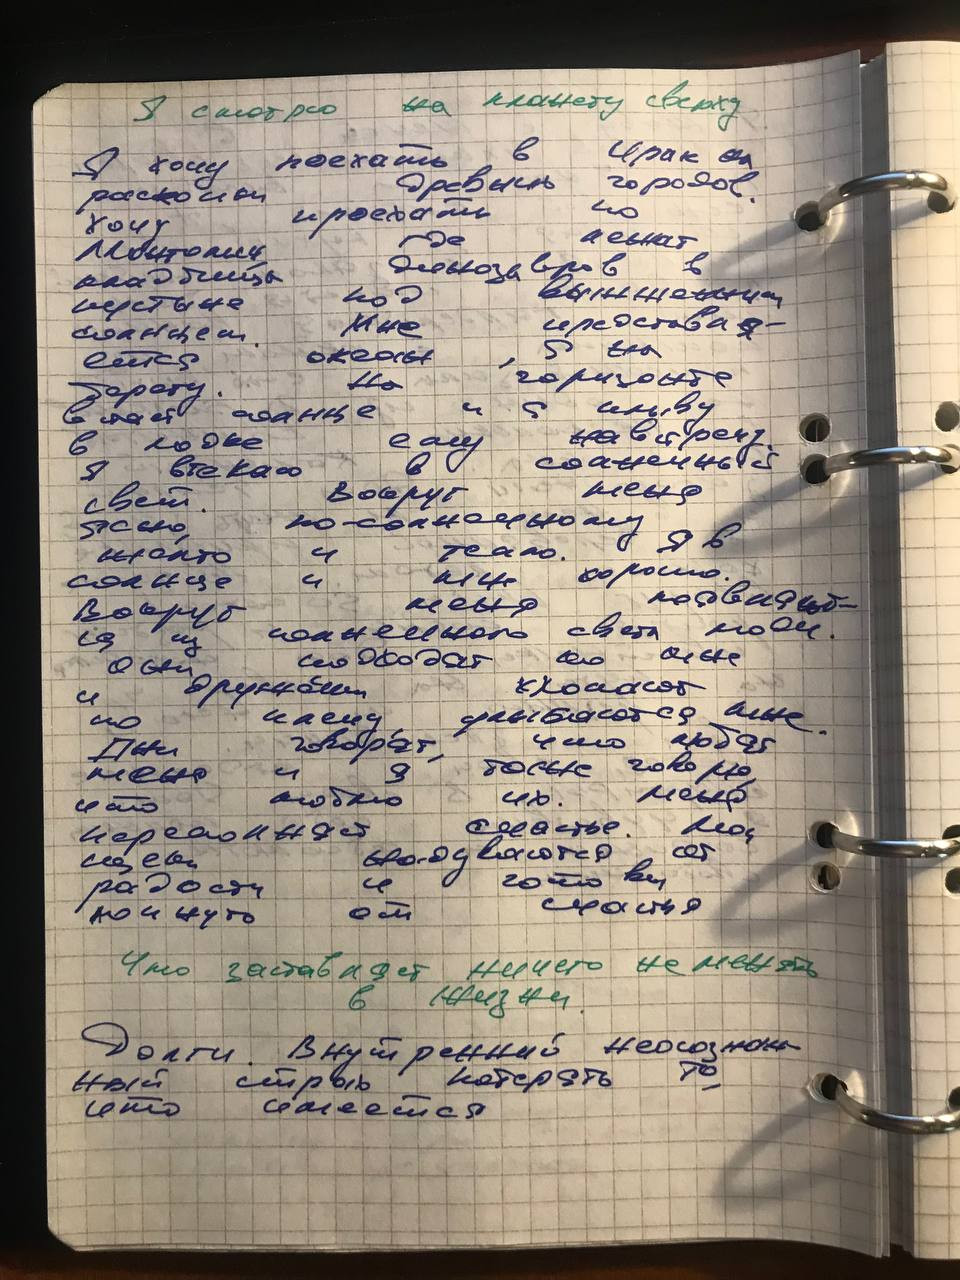 Я смотрю на планету сверху
Я хочу поехать в Ирак на
раскопки древних городов.
Хочу проехать по
Монголии где лежат
кладбищы динозавров в
пустыне под выжженным
солнцем. Мне представля-
ется океан, я на
берегу. На горизонте
встает солнце и я плыву
в лодке ему навстречу.
Я втекаю в солнечный
свет. Вокруг меня
ясно, по-солнечному
желто и тепло. Я в
солнце и мне хорошо.
Вокруг меня появляют-
ся из солнечного света люди.
Они подходят ко мне
и дружески хлопают
по плечу улыбаются мне.
Они говорят, что любят
меня и я тоже говорю,
что люблю их. Меня
переполняет счастье. Мои
щеки надуваются от
радости и готовы
лопнуть от счастья
Что заставляет ничего не менять
в жизни.
Долги. Внутренний неосознан-
ный страх потерять то,
что имеется